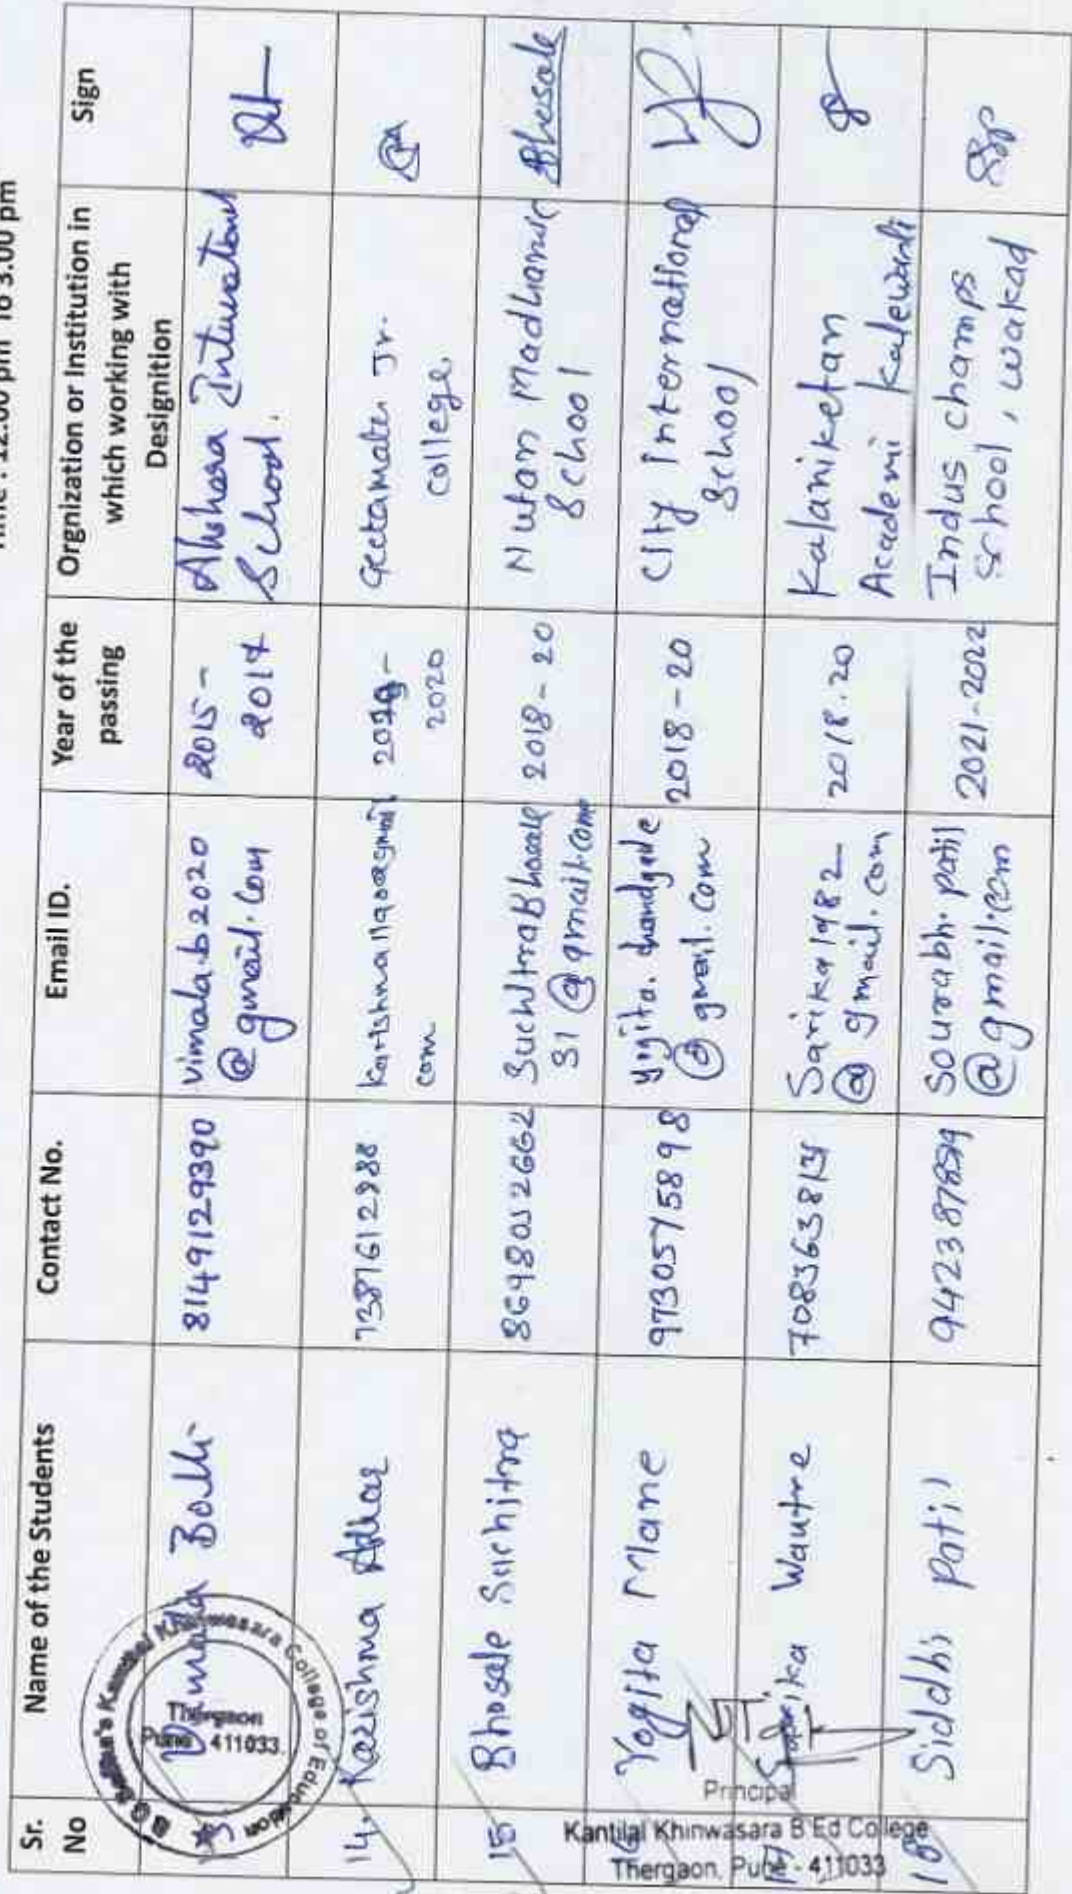 Time : 12.00 pm To 3.00 pm
Sr. No
Name of the Students
Contact No.
Email ID.
Year of the passing
Orgnization or Institution in which working with Designition
Sign
8149129390
vimala.b2020
@gmail.com
2015 -
2017
Akshara International
School.
14.
Karishma
7387612988
2020
Geetamata Jr.
College
15
Bhosale Suchitra
8698052662
31@gmail.com
2018-20
Nutan Madhamic
School
Bhosale
Yogita Mane
9730575898
@gmail.com
2018-20
City International
School
Sarika Wautre
7083638134
Sarika1982
@gmail.com
2018.20
Kalaniketan
Academi Kalewadi
18
Siddhi Patil
Sourabh.patil
@gmail.com
2021-2022
Indus champs
School, wakad
Kantilal Khinwasara College of Education
Thergaon
Pune 411033.
Principal
Kantilal Khinwasara B Ed College
Thergaon, Pune - 411033